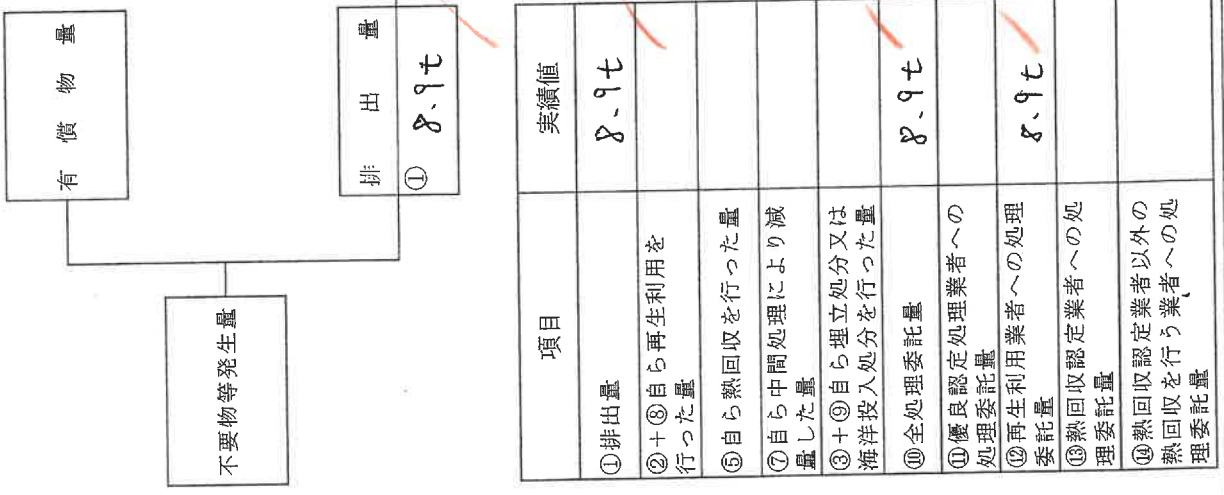 有償物量
不要物等発生量
排出量
① 8.9t
項目 実績値
①排出量 8.9t
②+⑧自ら再生利用を
行った量
⑤自ら熱回収を行った量
⑦自ら中間処理により減
量した量
③+⑨自ら埋立処分又は
海洋投入処分を行った量
⑩全処理委託量 8.9t
⑪優良認定処理業者への
処理委託量
⑫再生利用業者への処理
委託量 8.9t
⑬熱回収認定業者への処
理委託量
⑭熱回収認定業者以外の
熱回収を行う業者への処
理委託量